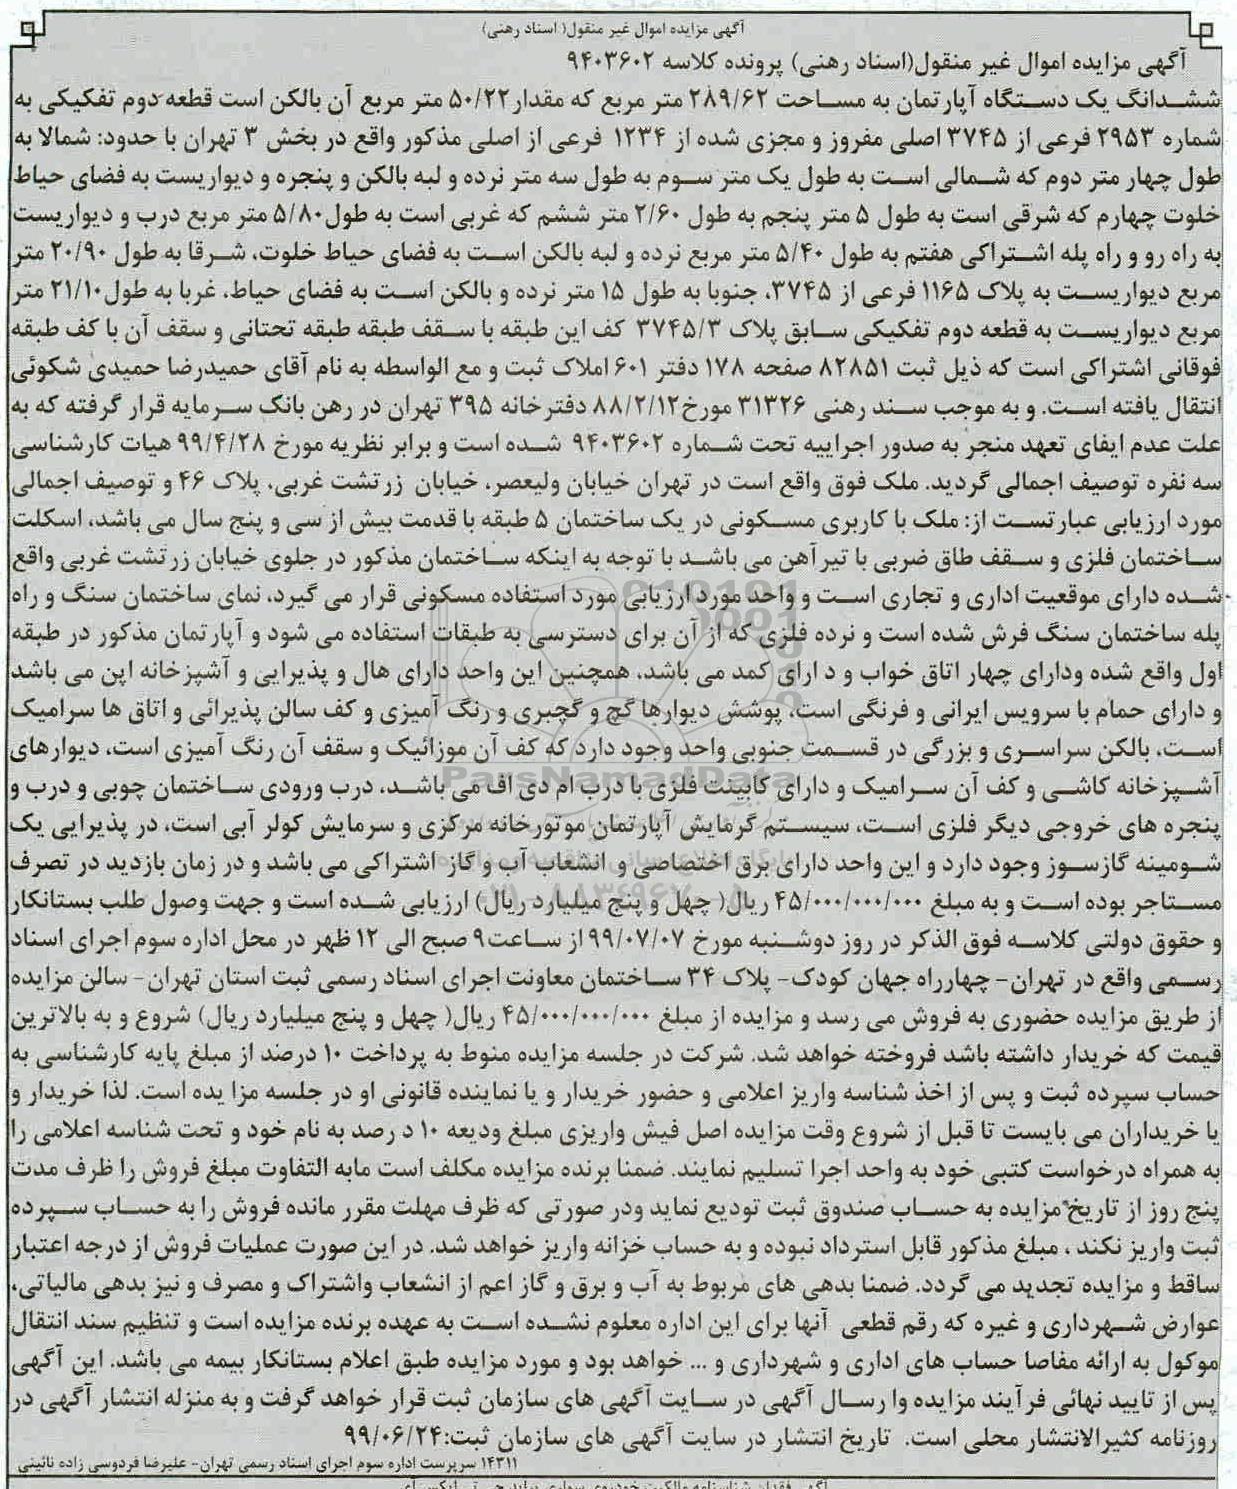 آگهی مزایده اموال غیر منقول( اسناد رهنی)
آگهی مزایده اموال غیر منقول(اسناد رهنی) پرونده کلاسه ۹۴۰۳۶۰۲
ششدانگ یک دستگاه آپارتمان به مساحت ۲۸۹/۶۲ متر مربع که مقدار۵۰/۲۲ متر مربع آن بالکن است قطعه دوم تفکیکی به
شماره ۲۹۵۳ فرعی از ۳۷۴۵ اصلی مفروز و مجزی شده از ۱۲۳۴ فرعی از اصلی مذکور واقع در بخش ۳ تهران با حدود: شمالا به
طول چهار متر دوم که شمالی است به طول یک متر سوم به طول سه متر نرده و لبه بالکن و پنجره و دیواریست به فضای حیاط
خلوت چهارم که شرقی است به طول ۵ متر پنجم به طول ۲/۶۰ متر ششم که غربی است به طول۵/۸۰ متر مربع درب و دیواریست
به راه رو و راه پله اشتراکی هفتم به طول ۵/۴۰ متر مربع نرده و لبه بالکن است به فضای حیاط خلوت، شرقا به طول ۲۰/۹۰ متر
مربع دیواریست به پلاک ۱۱۶۵ فرعی از ۳۷۴۵، جنوبا به طول ۱۵ متر نرده و بالکن است به فضای حیاط، غربا به طول۲۱/۱۰ متر
مربع دیواریست به قطعه دوم تفکیکی سابق پلاک ۳۷۴۵/۳ کف این طبقه با سقف طبقه طبقه تحتانی و سقف آن با کف طبقه
فوقانی اشتراکی است که ذیل ثبت ۸۲۸۵۱ صفحه ۱۷۸ دفتر ۶۰۱ املاک ثبت و مع الواسطه به نام آقای حمیدرضا حمیدی شکوئی
انتقال یافته است. و به موجب سند رهنی ۳۱۳۲۶ مورخ۸۸/۲/۱۲ دفترخانه ۳۹۵ تهران در رهن بانک سرمایه قرار گرفته که به
علت عدم ایفای تعهد منجر به صدور اجراییه تحت شماره ۹۴۰۳۶۰۲ شده است و برابر نظریه مورخ ۹۹/۴/۲۸ هیات کارشناسی
سه نفره توصیف اجمالی گردید. ملک فوق واقع است در تهران خیابان ولیعصر، خیابان زرتشت غربی، پلاک ۴۶ و توصیف اجمالی
مورد ارزیابی عبارتست از: ملک با کاربری مسکونی در یک ساختمان ۵ طبقه با قدمت بیش از سی و پنج سال می باشد، اسکلت
ساختمان فلزی و سقف طاق ضربی با تیرآهن می باشد با توجه به اینکه ساختمان مذکور در جلوی خیابان زرتشت غربی واقع
شده دارای موقعیت اداری و تجاری است و واحد مورد ارزیابی مورد استفاده مسکونی قرار می گیرد، نمای ساختمان سنگ و راه
پله ساختمان سنگ فرش شده است و نرده فلزی که از آن برای دسترسی به طبقات استفاده می شود و آپارتمان مذکور در طبقه
اول واقع شده ودارای چهار اتاق خواب و د ارای کمد می باشد، همچنین این واحد دارای هال و پذیرایی و آشپزخانه اپن می باشد
و دارای حمام با سرویس ایرانی و فرنگی است، پوشش دیوارها گچ و گچبری و رنگ آمیزی و کف سالن پذیرائی و اتاق ها سرامیک
است، بالکن سراسری و بزرگی در قسمت جنوبی واحد وجود دارد که کف آن موزائیک و سقف آن رنگ آمیزی است، دیوارهای
ParsNamadData
آشپزخانه کاشی و کف آن سرامیک و دارای کابینت فلزی با درب ام دی اف می باشد، درب ورودی ساختمان چوبی و درب و
پنجره های خروجی دیگر فلزی است، سیستم گرمایش آپارتمان موتورخانه مرکزی و سرمایش کولر آبی است، در پذیرایی یک
شومینه گازسوز وجود دارد و این واحد دارای برق اختصاصی و انشعاب آب و گاز اشتراکی می باشد و در زمان بازدید در تصرف
مستاجر بوده است و به مبلغ ۴۵/۰۰۰/۰۰۰/۰۰۰ ریال( چهل و پنج میلیارد ریال) ارزیابی شده است و جهت وصول طلب بستانکار
و حقوق دولتی کلاسه فوق الذکر در روز دوشنبه مورخ ۹۹/۰۷/۰۷ از ساعت۹ صبح الی ۱۲ ظهر در محل اداره سوم اجرای اسناد
رسمی واقع در تهران- چهارراه جهان کودک- پلاک ۳۴ ساختمان معاونت اجرای اسناد رسمی ثبت استان تهران- سالن مزایده
از طریق مزایده حضوری به فروش می رسد و مزایده از مبلغ ۴۵/۰۰۰/۰۰۰/۰۰۰ ریال( چهل و پنج میلیارد ریال) شروع و به بالاترین
قیمت که خریدار داشته باشد فروخته خواهد شد. شرکت در جلسه مزایده منوط به پرداخت ۱۰ درصد از مبلغ پایه کارشناسی به
حساب سپرده ثبت و پس از اخذ شناسه واریز اعلامی و حضور خریدار و یا نماینده قانونی او در جلسه مزا یده است. لذا خریدار و
یا خریداران می بایست تا قبل از شروع وقت مزایده اصل فیش واریزی مبلغ ودیعه ۱۰ د رصد به نام خود و تحت شناسه اعلامی را
به همراه درخواست کتبی خود به واحد اجرا تسلیم نمایند. ضمنا برنده مزایده مکلف است مابه التفاوت مبلغ فروش را ظرف مدت
پنج روز از تاریخ مزایده به حساب صندوق ثبت تودیع نماید ودر صورتی که ظرف مهلت مقرر مانده فروش را به حساب سپرده
ثبت واریز نکند ، مبلغ مذکور قابل استرداد نبوده و به حساب خزانه واریز خواهد شد. در این صورت عملیات فروش از درجه اعتبار
ساقط و مزایده تجدید می گردد. ضمنا بدهی های مربوط به آب و برق و گاز اعم از انشعاب واشتراک و مصرف و نیز بدهی مالیاتی،
عوارض شهرداری و غیره که رقم قطعی آنها برای این اداره معلوم نشده است به عهده برنده مزایده است و تنظیم سند انتقال
موکول به ارائه مفاصا حساب های اداری و شهرداری و ... خواهد بود و مورد مزایده طبق اعلام بستانکار بیمه می باشد. این آگهی
پس از تایید نهائی فرآیند مزایده وا رسال آگهی در سایت آگهی های سازمان ثبت قرار خواهد گرفت و به منزله انتشار آگهی در
روزنامه کثیرالانتشار محلی است. تاریخ انتشار در سایت آگهی های سازمان ثبت:۹۹/۰۶/۲۴
۱۴۳۱۱ سرپرست اداره سوم اجرای اسناد رسمی تهران- علیرضا فردوسی زاده نائینی